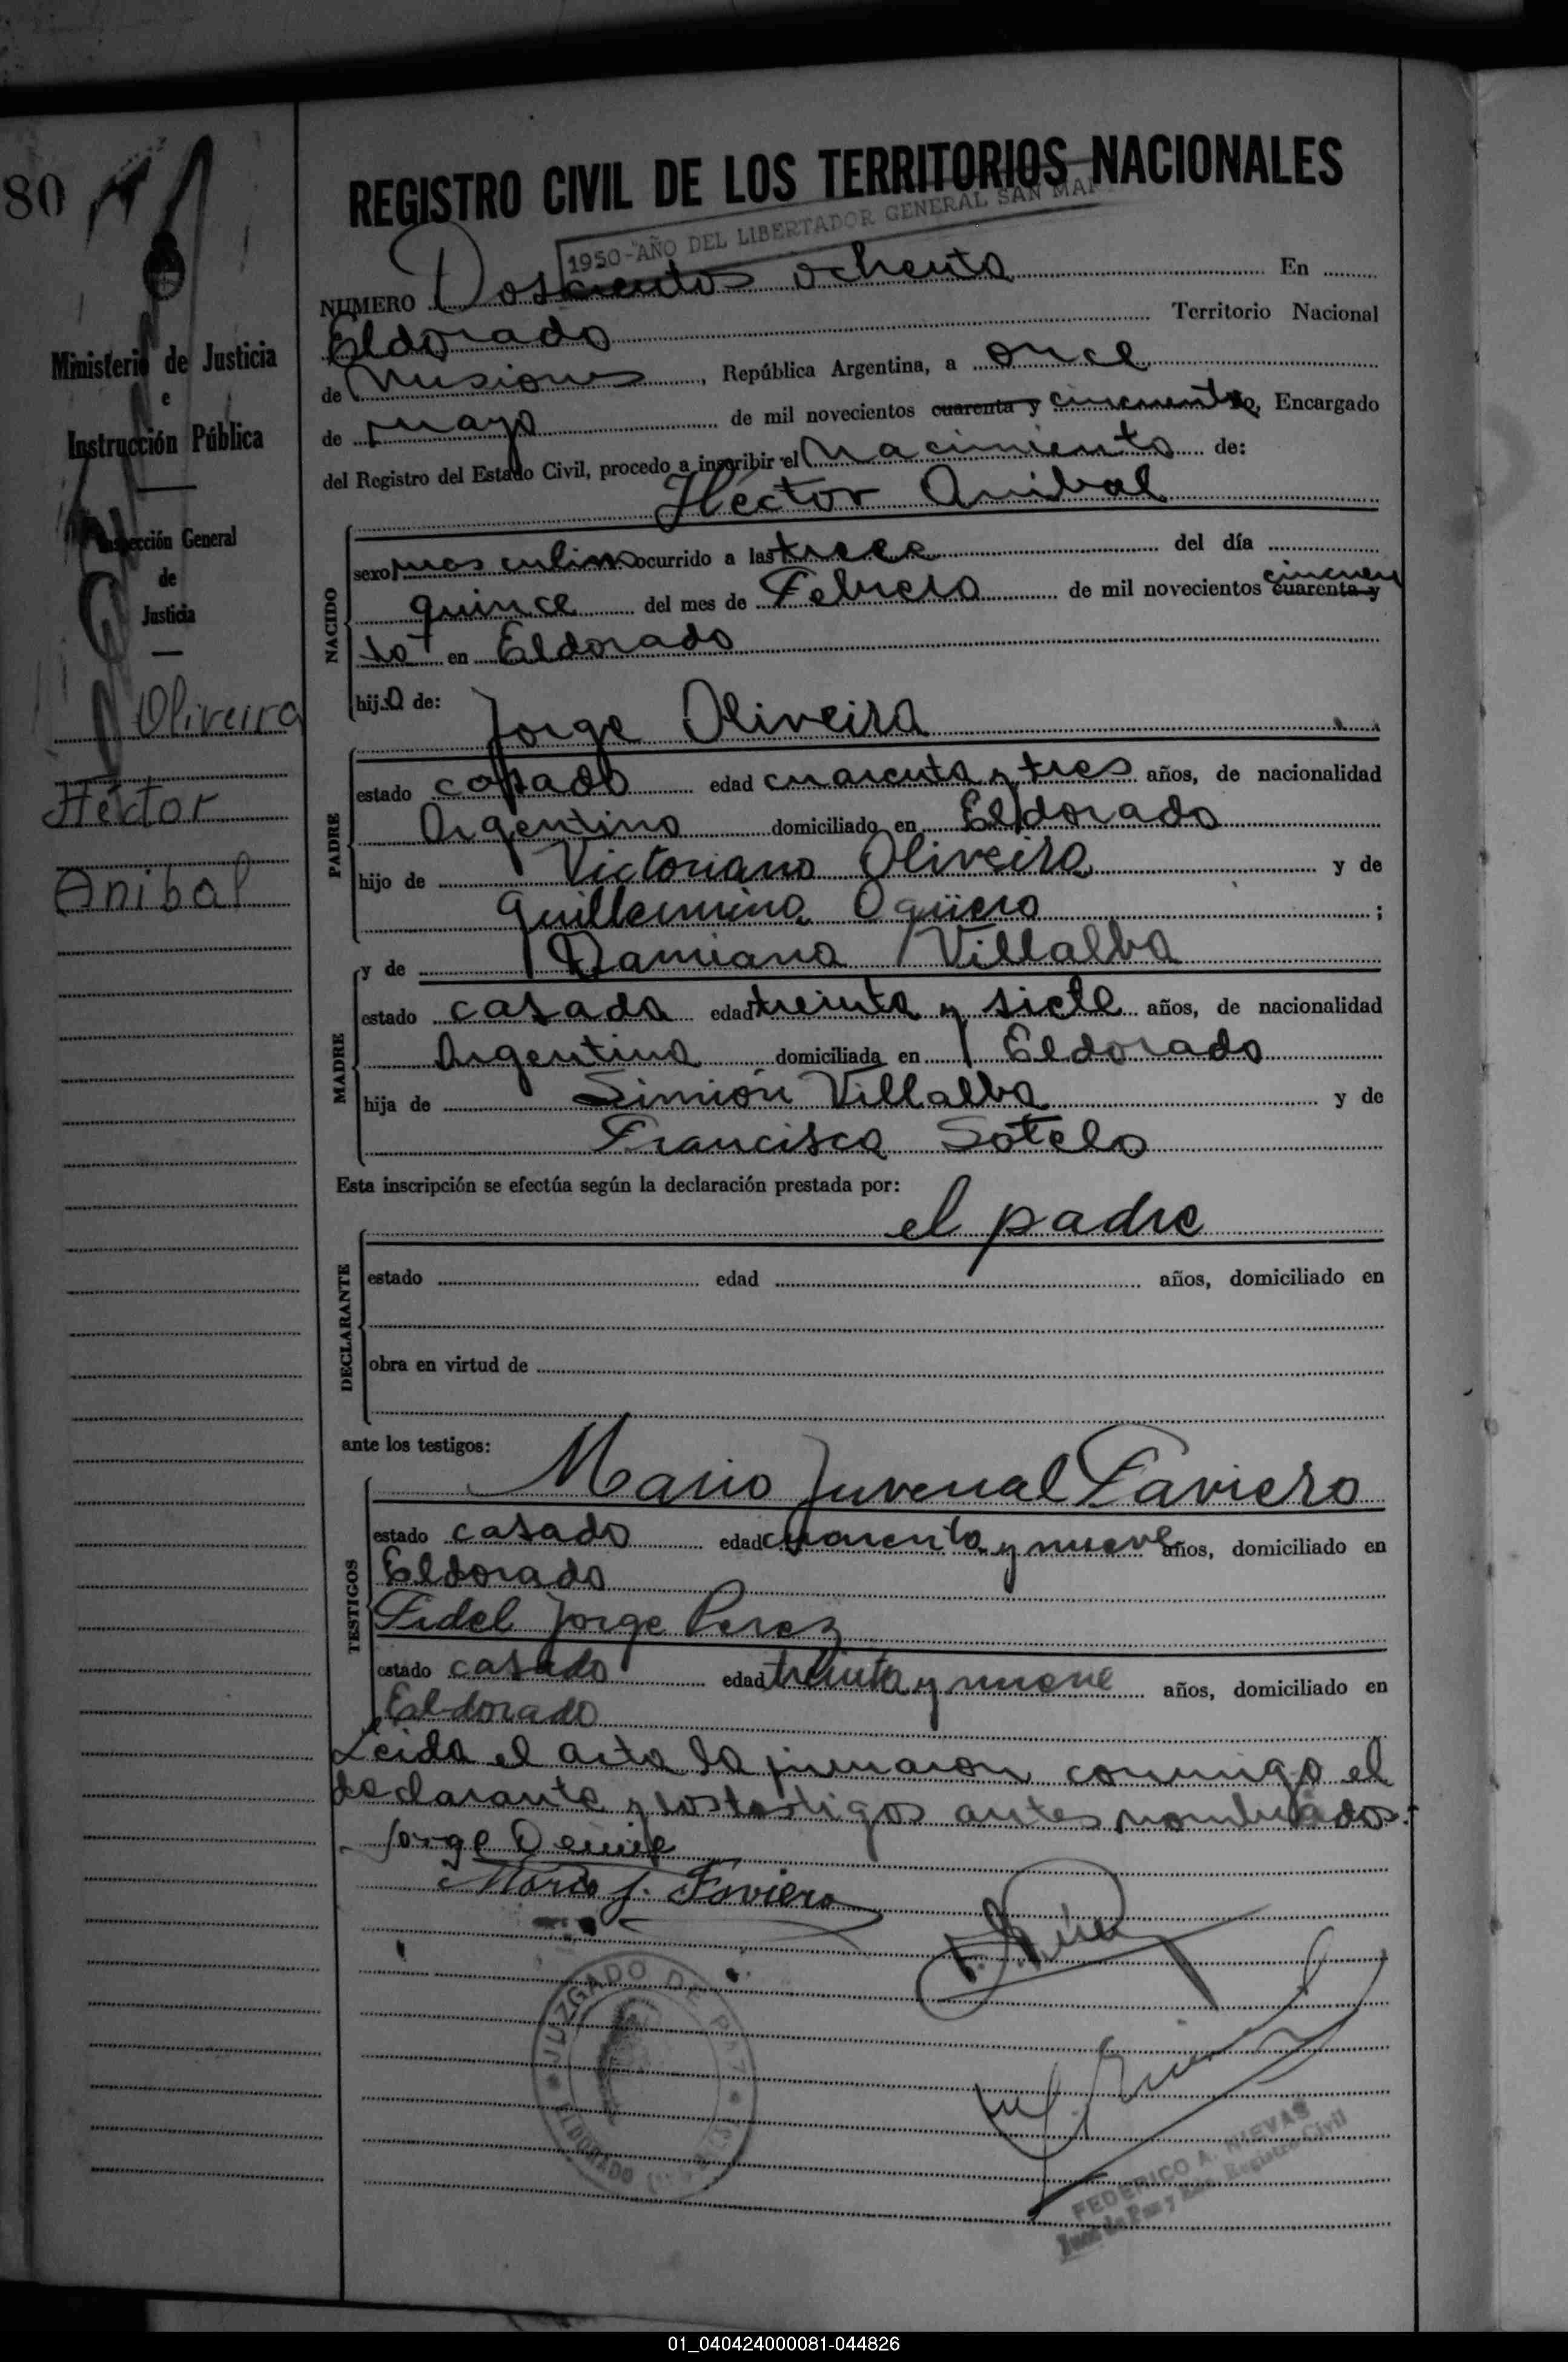 80
REGISTRO CIVIL DE LOS TERRITORIOS NACIONALES
1950-AÑO DEL LIBERTADOR GENERAL SAN MAR
NUMERO Doscientos ochenta En
Eldorado Territorio Nacional
de Misiones, República Argentina, a once
de mayo de mil novecientos cuarenta y cincuenta Yo, Encargado
del Registro del Estado Civil, procedo a inscribir el Nacimiento de:
Héctor Anibal
NACIDO
sexo masculino ocurrido a las trece del día
quince del mes de Febrero de mil novecientos cuarenta y cincuen
ta en Eldorado
hijo de:
Jorge Oliveira
PADRE
estado casado edad cuarenta y tres años, de nacionalidad
Argentino domiciliado en Eldorado
hijo de Victoriano Oliveira y de
Guillermina Ogüero ;
y de Damiana Villalba
MADRE
estado casada edad treinta y siete años, de nacionalidad
Argentina domiciliada en Eldorado
hija de Simión Villalba y de
Francisca Sotelo
Esta inscripción se efectúa según la declaración prestada por:
el padre
DECLARANTE
estado edad años, domiciliado en
obra en virtud de
ante los testigos:
Mario Juvenal Faviero
TESTIGOS
estado casado edad cuarenta y nueve años, domiciliado en
Eldorado
Fidel Jorge Perez
estado casado edad treinta y nueve años, domiciliado en
Eldorado
Leida el acta la firmaron conmigo el
declarante y los testigos antes nombrados.
Jorge
Mario J. Faviero
JUZGADO DE PAZ
ELDORADO
FEDERICO A. NIEVAS
Juez de Paz y Enc. Registro Civil
Ministerio de Justicia
e
Instrucción Pública
Inspección General
de
Justicia
Oliveira
Héctor
Anibal
01_040424000081-044826